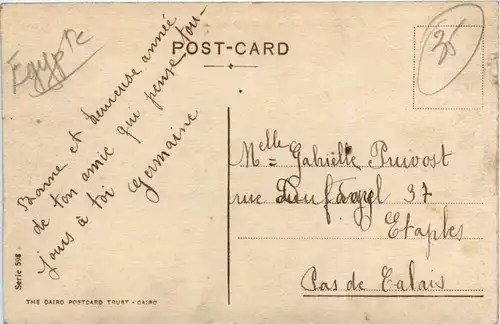 Egypte
POST-CARD
35
Bonne et heureuse année
de ton amie qui pense tou-
jours à toi
Germaine
Melle Gabrielle Pruvost
rue 37
Etaples
Pas de Calais
Serie 598
THE CAIRO POSTCARD TRUST - CAIRO